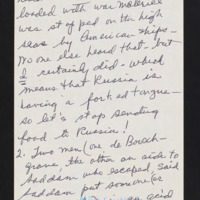 loaded with war materiel
was stopped on the high
seas by American ships -
No one else heard that - but
I certainly did - which
means that Russia is
having a forked tongue -
so let's stop sending
food to Russia!
2. Two men (one de Borch-
grave the other an aide to
Saddam who escaped, said
Saddam put someone (or
acid